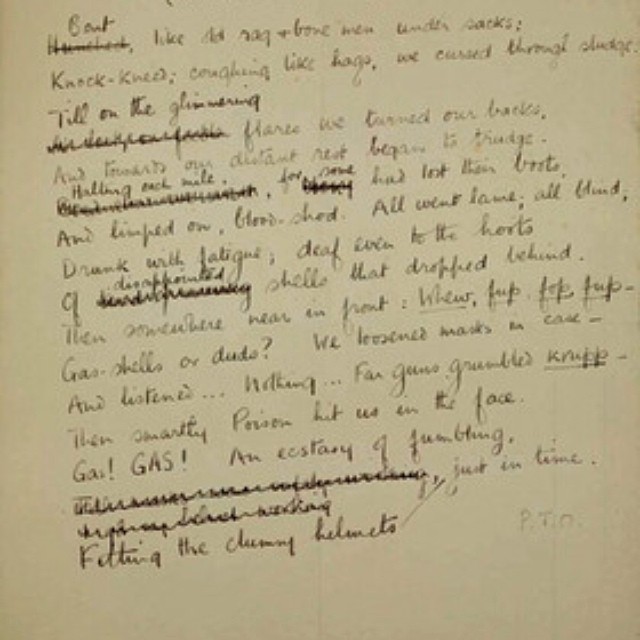 Bent
Hunched, like old rag & bone men under sacks;
Knock-kneed; coughing like hags, we cursed through sludge;
Till on the glimmering
flares we turned our backs,
And towards our distant rest began to trudge.
Halting each mile, for some
had lost their boots,
And limped on, blood-shod. All went lame; all blind;
Drunk with fatigue; deaf even to the hoots
disappointed
Of shells that dropped behind.
Then somewhere near in front: Whew, fup. fop fup–
Gas-shells or duds? We loosened masks in case –
And listened... Nothing... Far guns grumbled krupp –
Then smartly Poison hit us in the face.
Gas! GAS! An ecstasy of fumbling,
, just in time.
Fitting the clumsy helmets
P.T.O.